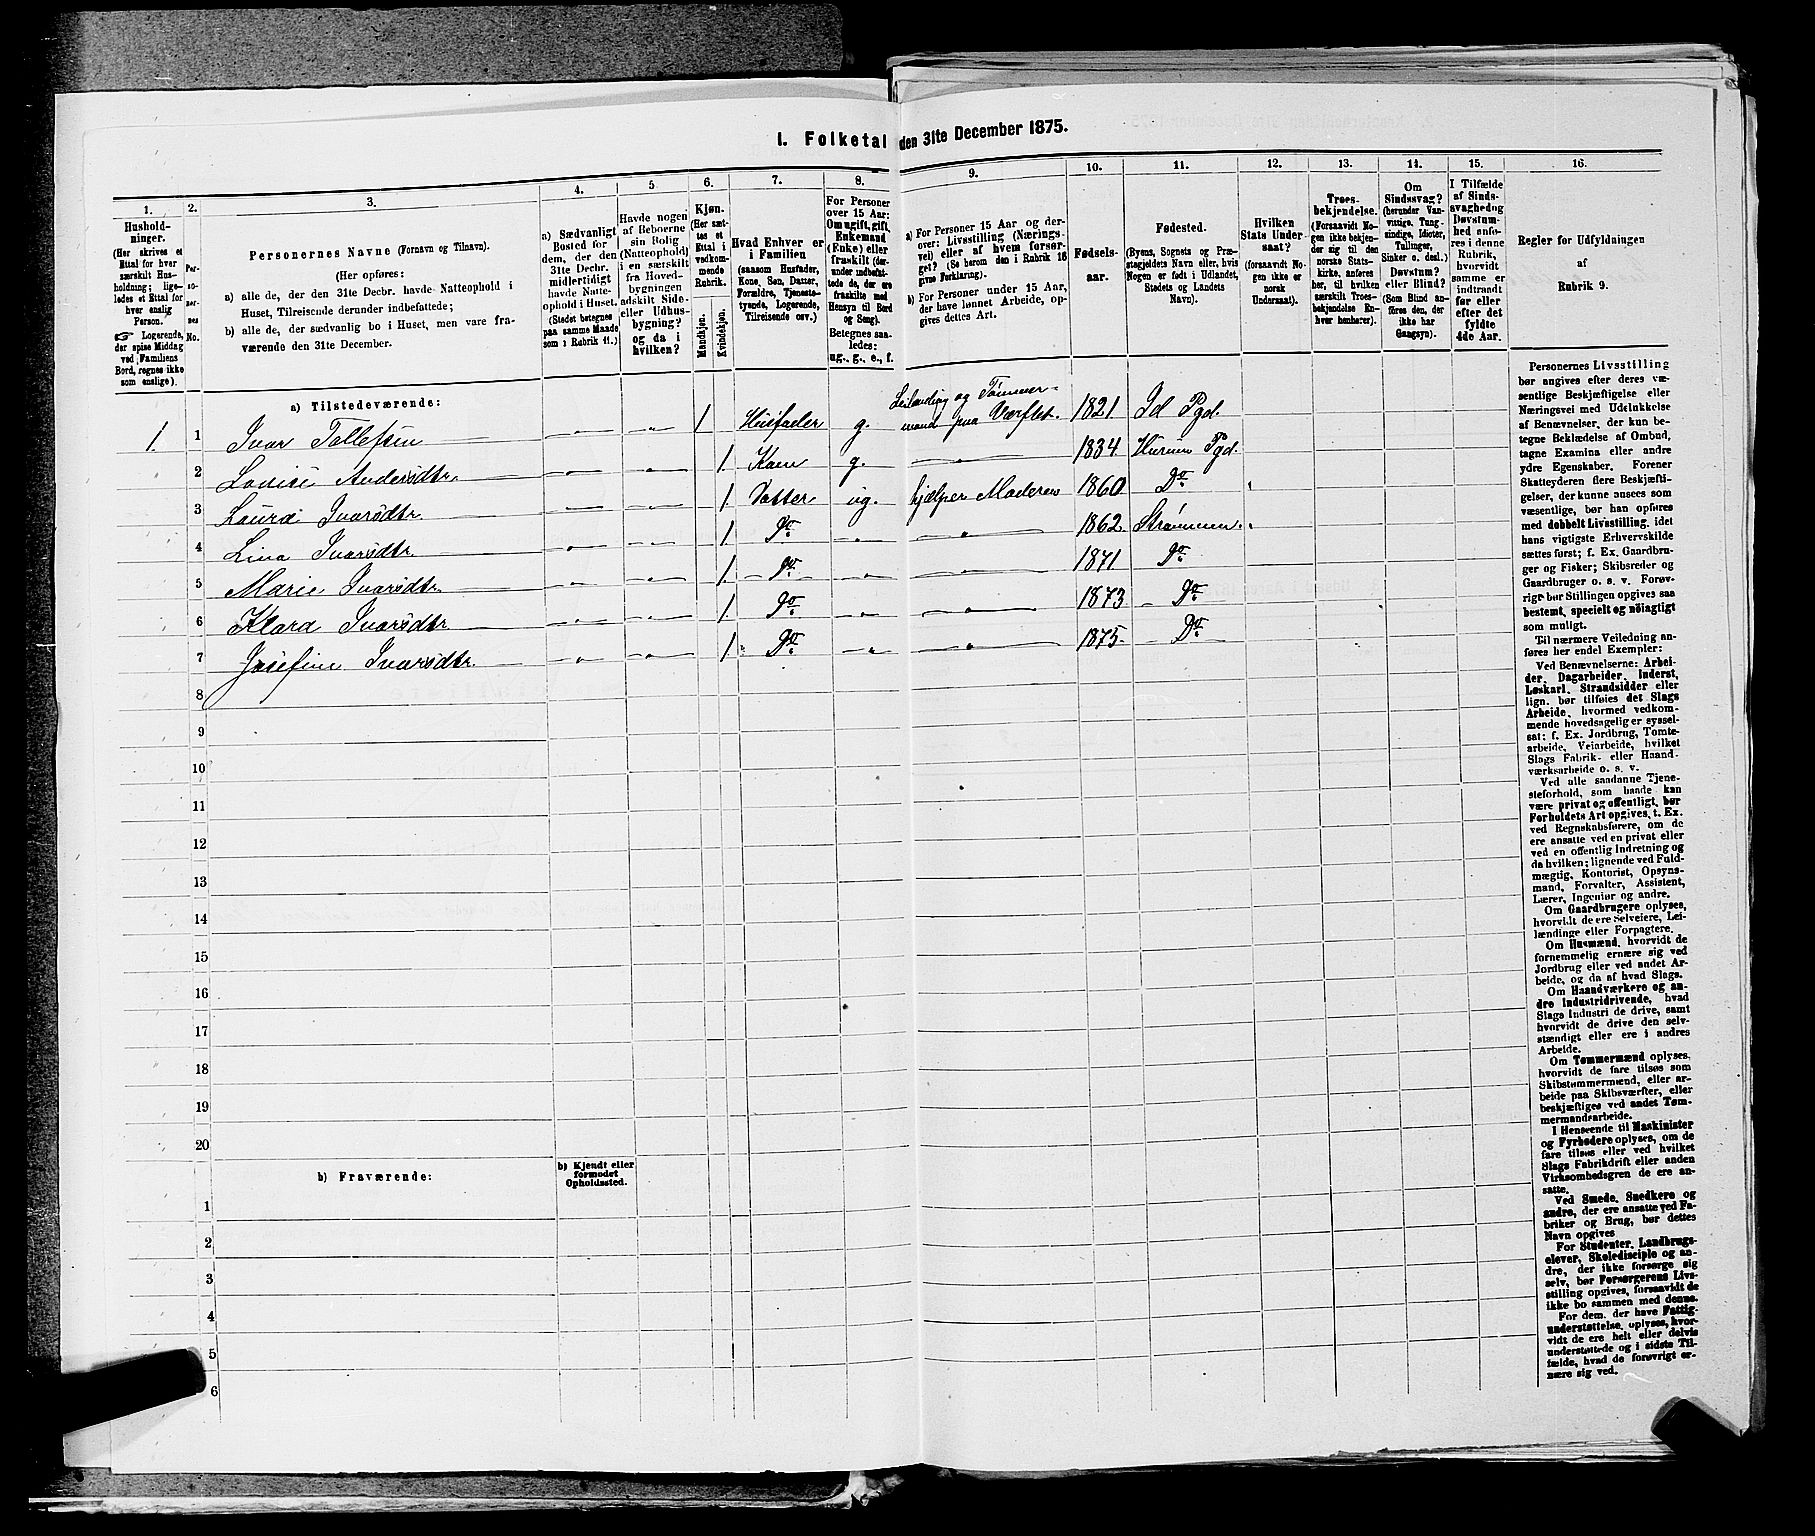 I. Folketal den 31te December 1875.
1. 2. 3. 4. 5. 6. 7. 8. 9. 10. 11. 12. 13. 14. 15. 16.
Hushold-
ninger.
(Her skrives et
Ettal for hver
særskilt Hus-
holdning; lige-
ledes et Ettal for
hver enslig
Person.
☞ Logerende,
der spise Middag
ved Familiens
Bord, regnes ikke
som enslige).
Per-
so-
ner-
nes
No.
Personernes Navne (Fornavn og Tilnavn).
(Her opføres:
a) alle de, der den 31te Decbr. havde Natteophold i
Huset, Tilreisende derunder indbefattede;
b) alle de, der sædvanlig bo i Huset, men vare fra-
værende den 31te December.
a) Sædvanligt
Bosted for
dem, der den
31te Decbr.
midlertidigt
havde Natte-
ophold i Huset.
(Stedet betegnes
paa samme Maade
som i Rubrik 11.)
Havde nogen
af Beboerne
sin Bolig
(Natteophold)
i en særskilt
fra Hoved-
bygningen
adskilt Side-
eller Udhus-
bygning?
og da i
hvilken?
Kjøn.
(Her sæt-
tes et
Ettal i
vedkom-
mende
Rubrik.
Mandkjøn.
Kvindekjøn.
Hvad Enhver er
i Familien
(saasom Husfader,
Kone, Søn, Datter,
Forældre, Tjeneste-
tyende, Logerende,
Tilreisende osv.)
For Personer
over 15 Aar:
Om ugift, gift,
Enkemand
(Enke) eller
fraskilt (der-
under indbefat-
tede de, der ere
fraskilte med
Hensyn til Bord
og Seng).
Betegnes saa-
ledes:
ug., g., e., f.
a) For Personer 15 Aar og der-
over: Livsstilling (Nærings-
vei) eller af hvem forsør-
get? (Se herom den i Rubrik 16
givne Forklaring).
b) For Personer under 15 Aar,
der have lønnet Arbeide, op-
gives dettes Art.
Fødsels-
aar.
Fødested.
(Byens, Sognets og Præ-
stegjeldets Navn eller, hvis
Nogen er født i Udlandet,
Stedets og Landets
Navn).
Hvilken
Stats Under-
saat?
(forsaavidt No-
gen ikke er
norsk
Undersaat).
Troes-
bekjendelse.
(Forsaavidt No-
gen ikke bekjen-
der sig til den
norske Stats-
kirke, anføres
her, til hvilken
særskilt Troes-
bekjendelse En-
hver henhører).
Om
Sindssvag?
(herunder Van-
vittige, Tung-
sindige, Idioter,
Tullinger,
Sinker o. desl.)
Døvstum?
eller Blind?
(Som Blind an-
føres den, der
ikke har
Gangsyn).
I Tilfælde
af Sinds-
svaghed og
Døvstum-
hed anfø-
res i denne
Rubrik,
hvorvidt
samme er
indtraadt
før eller
efter det
fyldte
4de Aar.
Regler for Udfyldningen
af
Rubrik 9.
a) Tilstedeværende:
1. 1 Ivar Tollefsen 1 Husfader g. Leilænding og Tømmer-
mand paa Værftet. 1821 Id Pgd.
2 Lovise Andersdtr. 1. Kone g. 1834 Hurum Pgd.
3 Laura Ivarsdtr. 1 Datter ug. hjælper Moderen 1860 Do
4 Lina Ivarsdtr. 1. Do 1862 Strømmen.
5 Marie Ivarsdtr. 1. Do 1871 Do
6 Klara Ivarsdtr. 1 Do 1873 Do
7 Josefine Ivarsdtr. 1. Do 1875 Do
8
9
10
11
12
13
14
15
16
17
18
19
20
b) Fraværende:
b) Kjendt eller
formodet
Opholdssted.
1
2
3
4
5
6
Personernes Livsstilling
bør angives efter deres væ-
sentlige Beskjæftigelse eller
Næringsvei med Udelukkelse
af Benævnelser, der kun be-
tegne Beklædelse af Ombud,
tagne Examina eller andre
ydre Egenskaber. Forener
Skatteyderen flere Beskjæfti-
gelser, der kunne ansees som
væsentlige, bør han opføres
med dobbelt Livsstilling, idet
hans vigtigste Erhvervskilde
sættes først; f. Ex. Gaardbru-
ger og Fisker; Skibsreder og
Gaardbruger o. s. v. Forøv-
rigt bør Stillingen opgives saa
bestemt, specielt og nøiagtigt
som muligt.
Til nærmere Veiledning an-
føres her endel Exempler:
Ved Benævnelserne: Arbei-
der, Dagarbeider, Inderst,
Løskarl, Strandsidder eller
lign. bør tilføies det Slags
Arbeide, hvormed vedkom-
mende hovedsagelig er syssel-
sat; f. Ex. Jordbrug, Tomte-
arbeide, Veiarbeide, hvilket
Slags Fabrik- eller Haand-
værksarbeide o. s. v.
Ved alle saadanne Tjene-
steforhold, som baade kan
være privat og offentligt, bør
Forholdets Art opgives, t. Ex.
ved Regnskabsførere, om de
ere ansatte ved en privat eller
ved en offentlig Indretning og
da hvilken; lignende ved Fuld-
mægtig, Kontorist, Opsyns-
mand, Forvalter, Assistent,
Lærer, Ingeniør og andre.
Om Gaardbrugere oplyses,
hvorvidt de ere Selveiere, Lei-
lændinge eller Forpagtere.
Om Husmænd, hvorvidt de
fornemmelig ernære sig ved
Jordbrug eller ved andet Ar-
beide, og da af hvad Slags.
Om Haandværkere og an-
dre Industridrivende, hvad
Slags Industri de drive, samt
hvorvidt de drive den selv-
stændigt eller ere i andres
Arbeide.
Om Tømmermænd oplyses,
hvorvidt de fare tilsøs som
Skibstømmermænd, eller ar-
beide paa Skibsværfter, eller
beskjæftiges ved andet Tøm-
mermandsarbeide.
I Henseende til Maskinister
og Fyrbødere oplyses, om de
fare tilsøs eller ved hvilket
Slags Fabrikdrift eller anden
Virksomhedsgren de ere an-
satte.
Ved Smede, Snedkere og
andre, der ere ansatte ved Fa-
briker og Brug, bør dettes
Navn opgives
For Studenter, Landbrugs-
elever, Skoledisciple og an-
dre, der ikke forsørge sig
selv, bør Forsørgerens Livs-
stilling opgives, forsaavidt de
ikke bo sammen med denne.
For dem, der have Fattig-
understøttelse, oplyses, hvor-
vidt de ere helt eller delvis
understøttede og i sidste Til-
fælde, hvad de forøvrigt er-
nære sig ved.